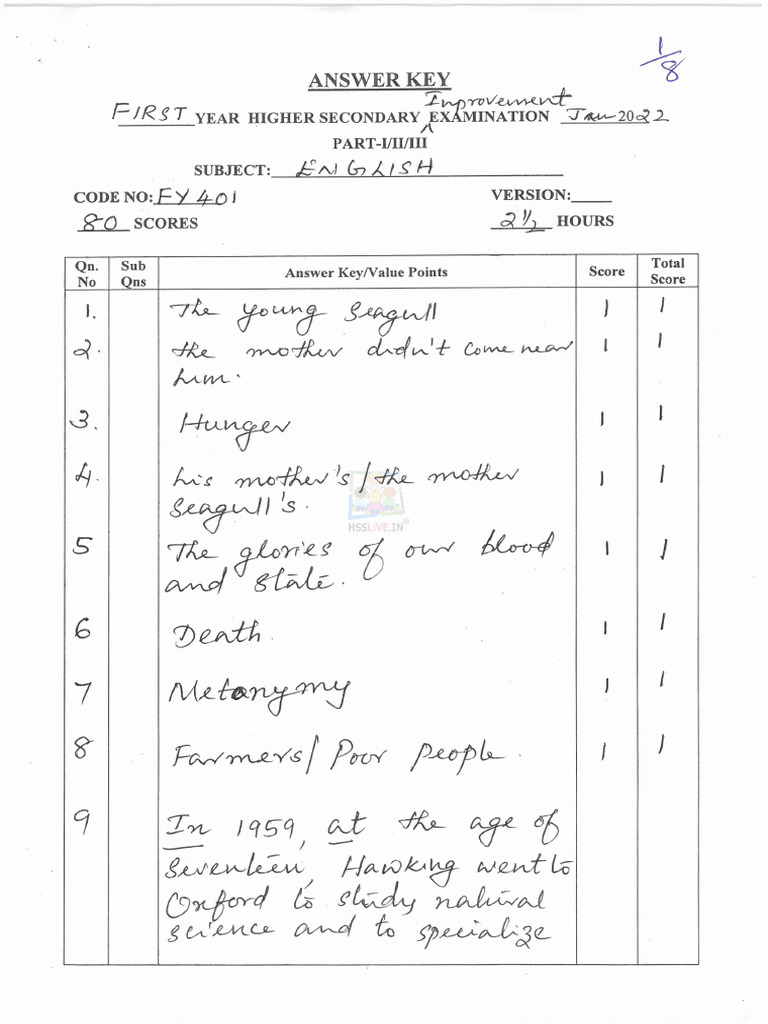 1/8
ANSWER KEY
Improvement
FIRST YEAR HIGHER SECONDARY EXAMINATION Jan 2022
PART-I/II/III
SUBJECT: ENGLISH
CODE NO: FY 401 VERSION:
80 SCORES 2 1/2 HOURS
Qn. No Sub Qns Answer Key/Value Points Score Total Score
1. The young Seagull 1 1
2. the mother didn't come near 1 1
him.
3. Hunger 1 1
4. his mother's / the mother 1 1
Seagull's.
HSSLIVE.IN®
5 The glories of our blood 1 1
and state.
6 Death. 1 1
7 Metonymy 1 1
8 Farmers / Poor people. 1 1
9 In 1959, at the age of
Seventeen, Hawking went to
Oxford to study natural
science and to specialize